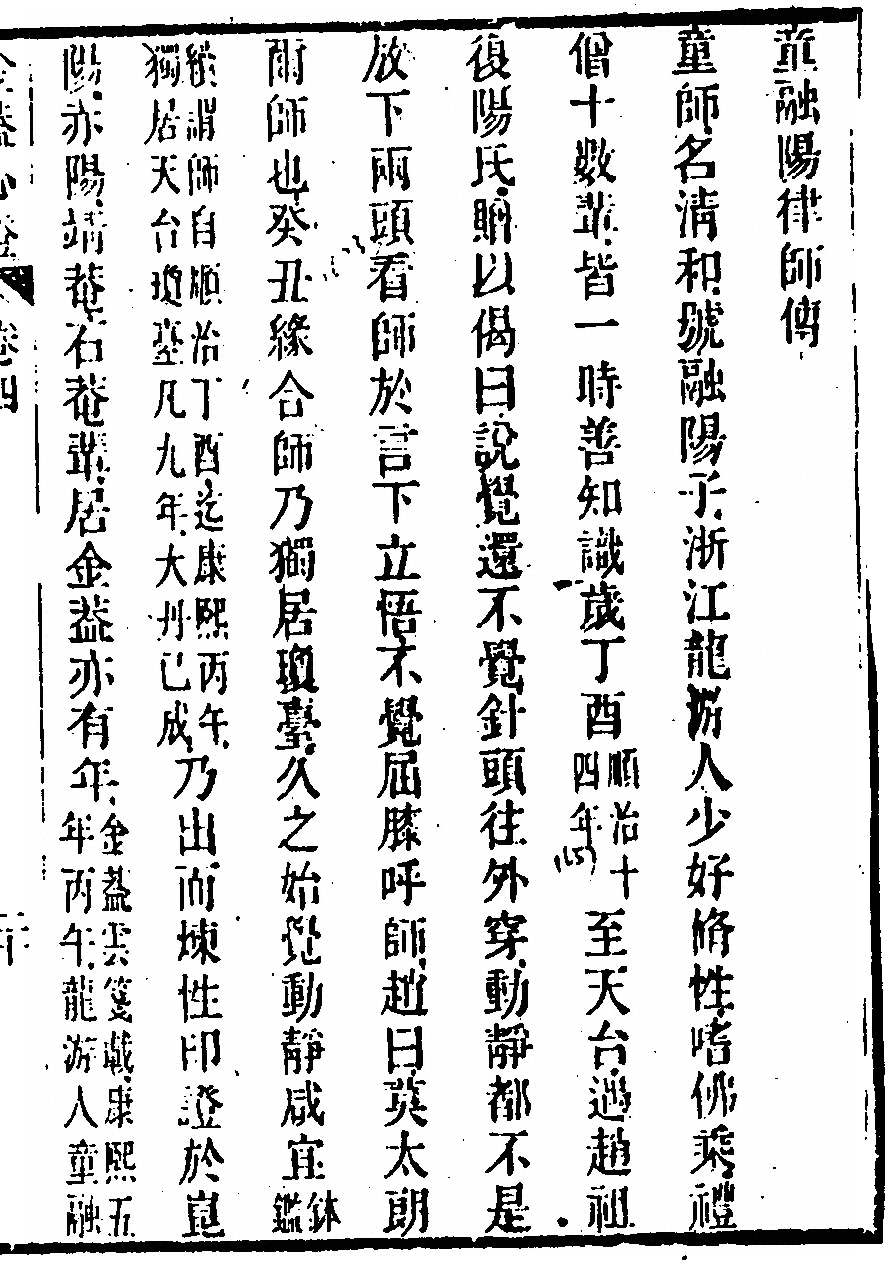 童融陽律師傳
童師名清和號融陽子浙江龍游人少好脩性嗜佛乘禮
僧十數輩皆一時善知識歲丁酉順治十四年至天台遇趙祖
復陽氏贈以偈曰說覺還不覺針頭往外穿動靜都不是
放下兩頭看師於言下立悟不覺屈膝呼師趙曰莫太朗
爾師也癸丑緣合師乃獨居瓊臺久之始覺動靜咸宜鉢鑑
續謂師自順治丁酉迄康熙丙午獨居天台瓊臺凡九年大丹已成乃出而煉性印證於崑
陽亦陽靖菴石菴輩居金蓋亦有年金蓋雲箋載康熙五年丙午龍游人童融
金蓋心燈
卷四